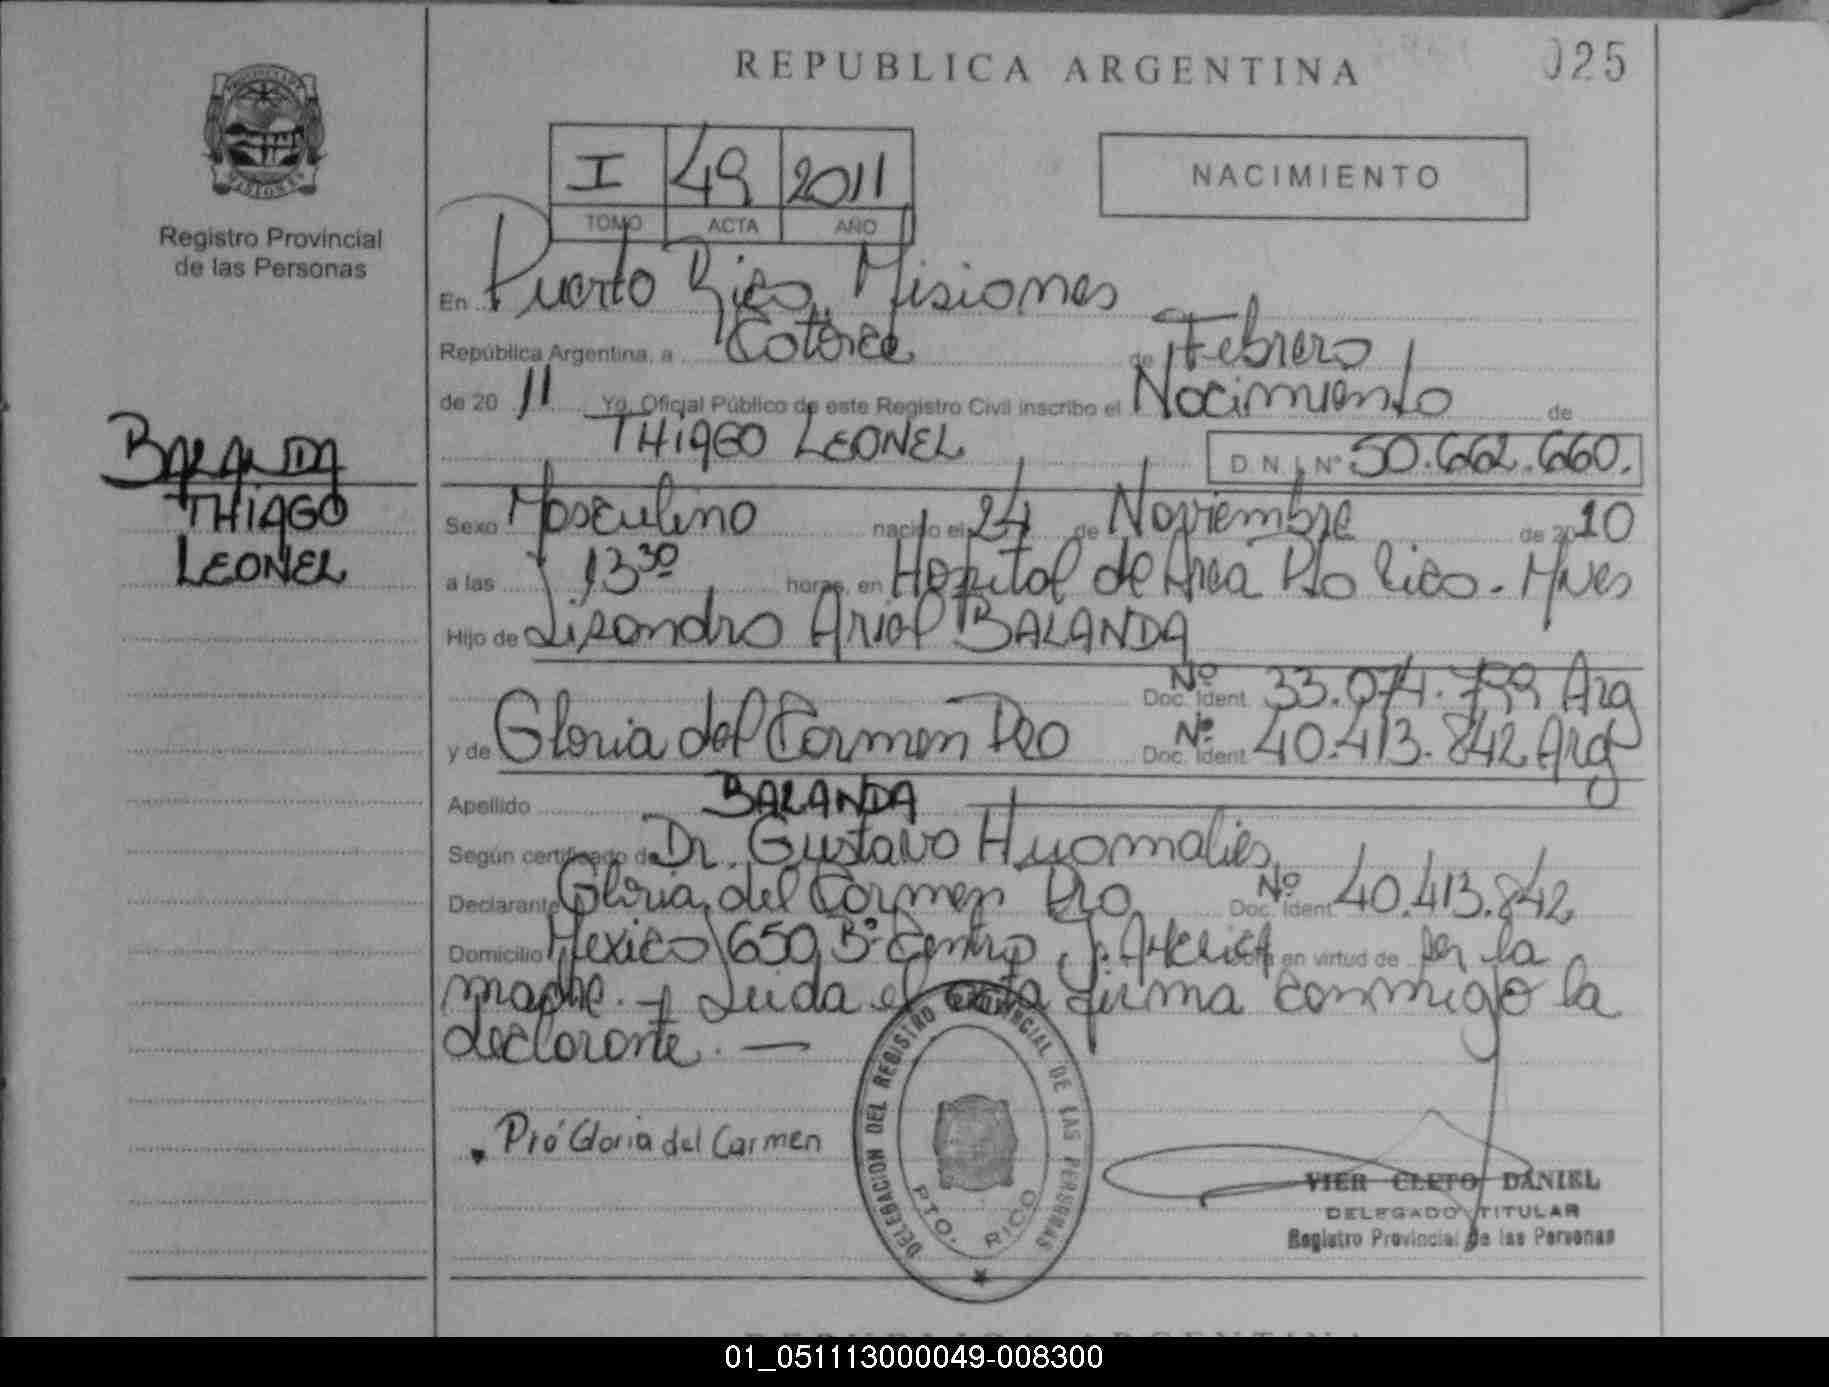 REPUBLICA ARGENTINA
025
I 49 2011
TOMO ACTA AÑO
NACIMIENTO
MISIONES
Registro Provincial
de las Personas
En Puerto Rico, Misiones
República Argentina, a Catorce de Febrero
de 20 11 Yo, Oficial Público de este Registro Civil inscribo el Nacimiento de
THIAGO LEONEL D N I N° 50.662.660.
BALANDA
THIAGO
LEONEL
Sexo Masculino nacido el 24 de Noviembre de 2010
a las 13 30 horas, en Hospital de Area Pto Rico. Mnes
Hijo de Lisandro Ariel BALANDA
Nº Doc. Ident. 33.074.799 Arg
y de Gloria del Carmen Pro Nº Doc. Ident. 40.413.842 Arg
Apellido BALANDA
Según certificado de Dr. Gustavo
Declarante Gloria del Carmen Pro Nº Doc. Ident. 40.413.842
Domicilio Mexico 650 Bº Centro en virtud de ser la
madre. Leida el acta firma conmigo la
declarante. —
Pro Gloria del Carmen
DELEGACION DEL REGISTRO PROVINCIAL DE LAS PERSONAS
PTO. RICO
VIER CLETO DANIEL
DELEGADO TITULAR
Registro Provincial de las Personas
REPUBLICA ARGENTINA
01_051113000049-008300